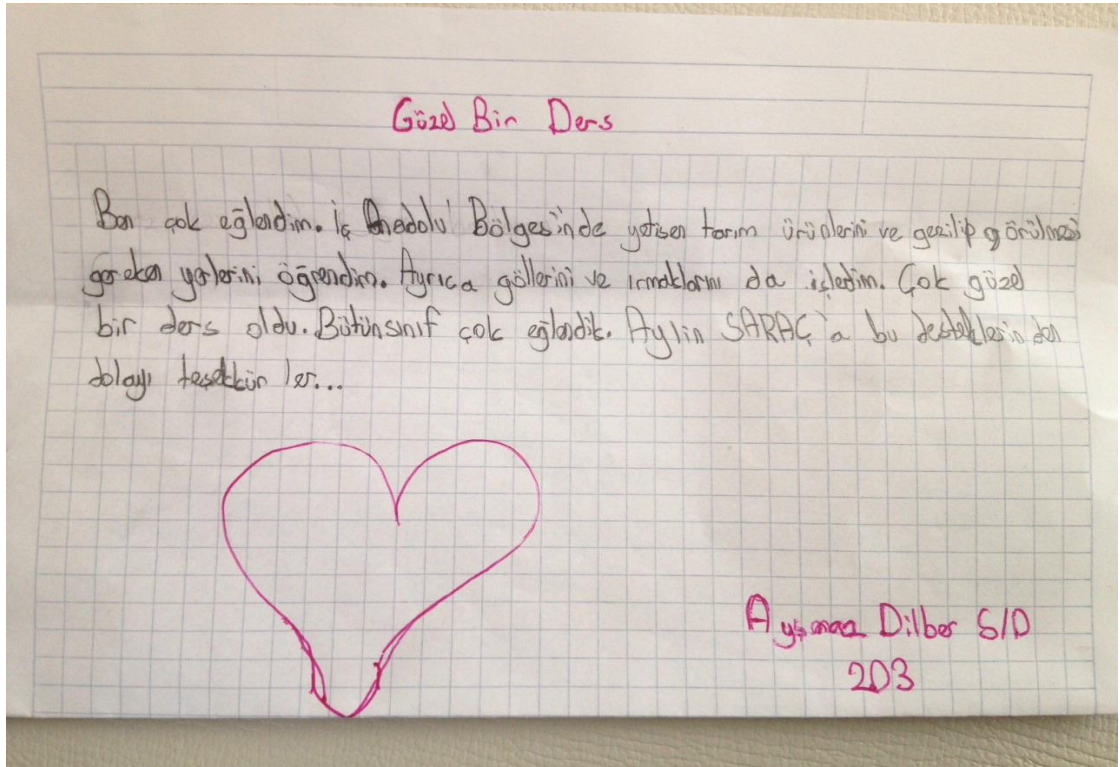 Güzel Bir Ders
Ben çok eğlendim. İç Anadolu Bölgesi'nde yetişen tarım ürünlerini ve gezilip görülmesi
gereken yerlerini öğrendim. Ayrıca göllerini ve ırmaklarını da işledim. Çok güzel
bir ders oldu. Bütün sınıf çok eğlendik. Aylin SARAÇ'a bu desteklerinden
dolayı teşekkürler...
Dilber 5/D
203